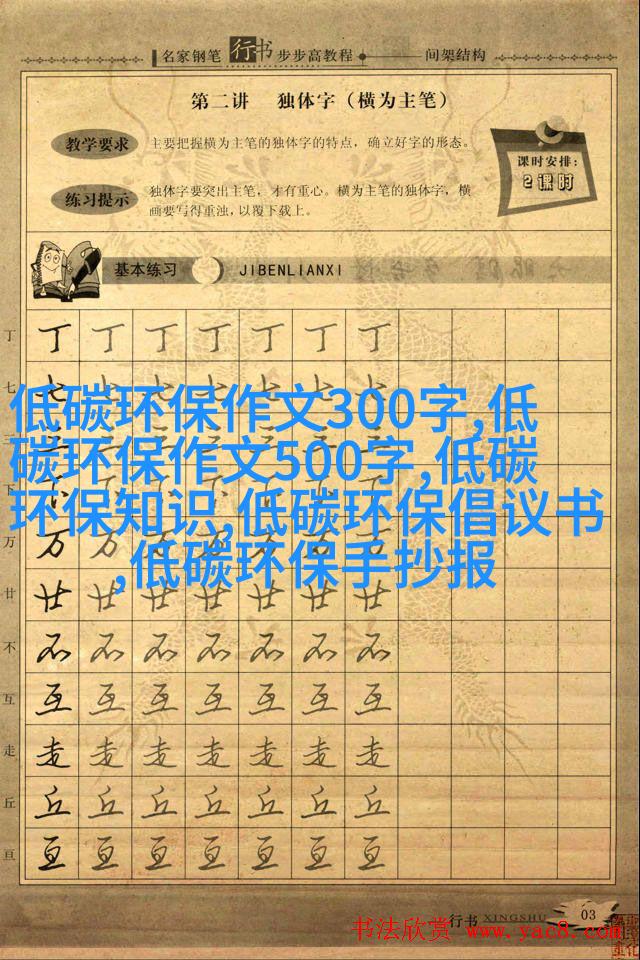 名家钢笔 行书 步步高教程 间架结构
第二讲 独体字（横为主笔）
教学要求 主要把握横为主笔的独体字的特点，确立好字的形态。
练习提示 独体字要突出主笔，才有重心。横为主笔的独体字，横
画要写得重浊，以覆下载上。
课时安排：
2课时
基本练习 JIBENLIANXI
丁 丁 丁 丁 丁 丁 丁 丁
七 七 七 七 七 七 七 七
低碳环保作文300字,低
碳环保作文500字,低碳
环保知识,低碳环保倡议书
,低碳环保手抄报
三
下
万 万 万 万 万 万 万 万
廿 廿 廿 廿 廿 廿 廿 廿
不 不 不 不 不 不 不 不
互 互 互 互 互 互 互 互
走 走 走 走 走 走 走 走
丘 丘 丘 丘 丘 丘 丘 丘
亘 亘 亘 亘 亘 亘 亘 亘
行书 XINGSHU 03
书法欣赏 www.yac8.com